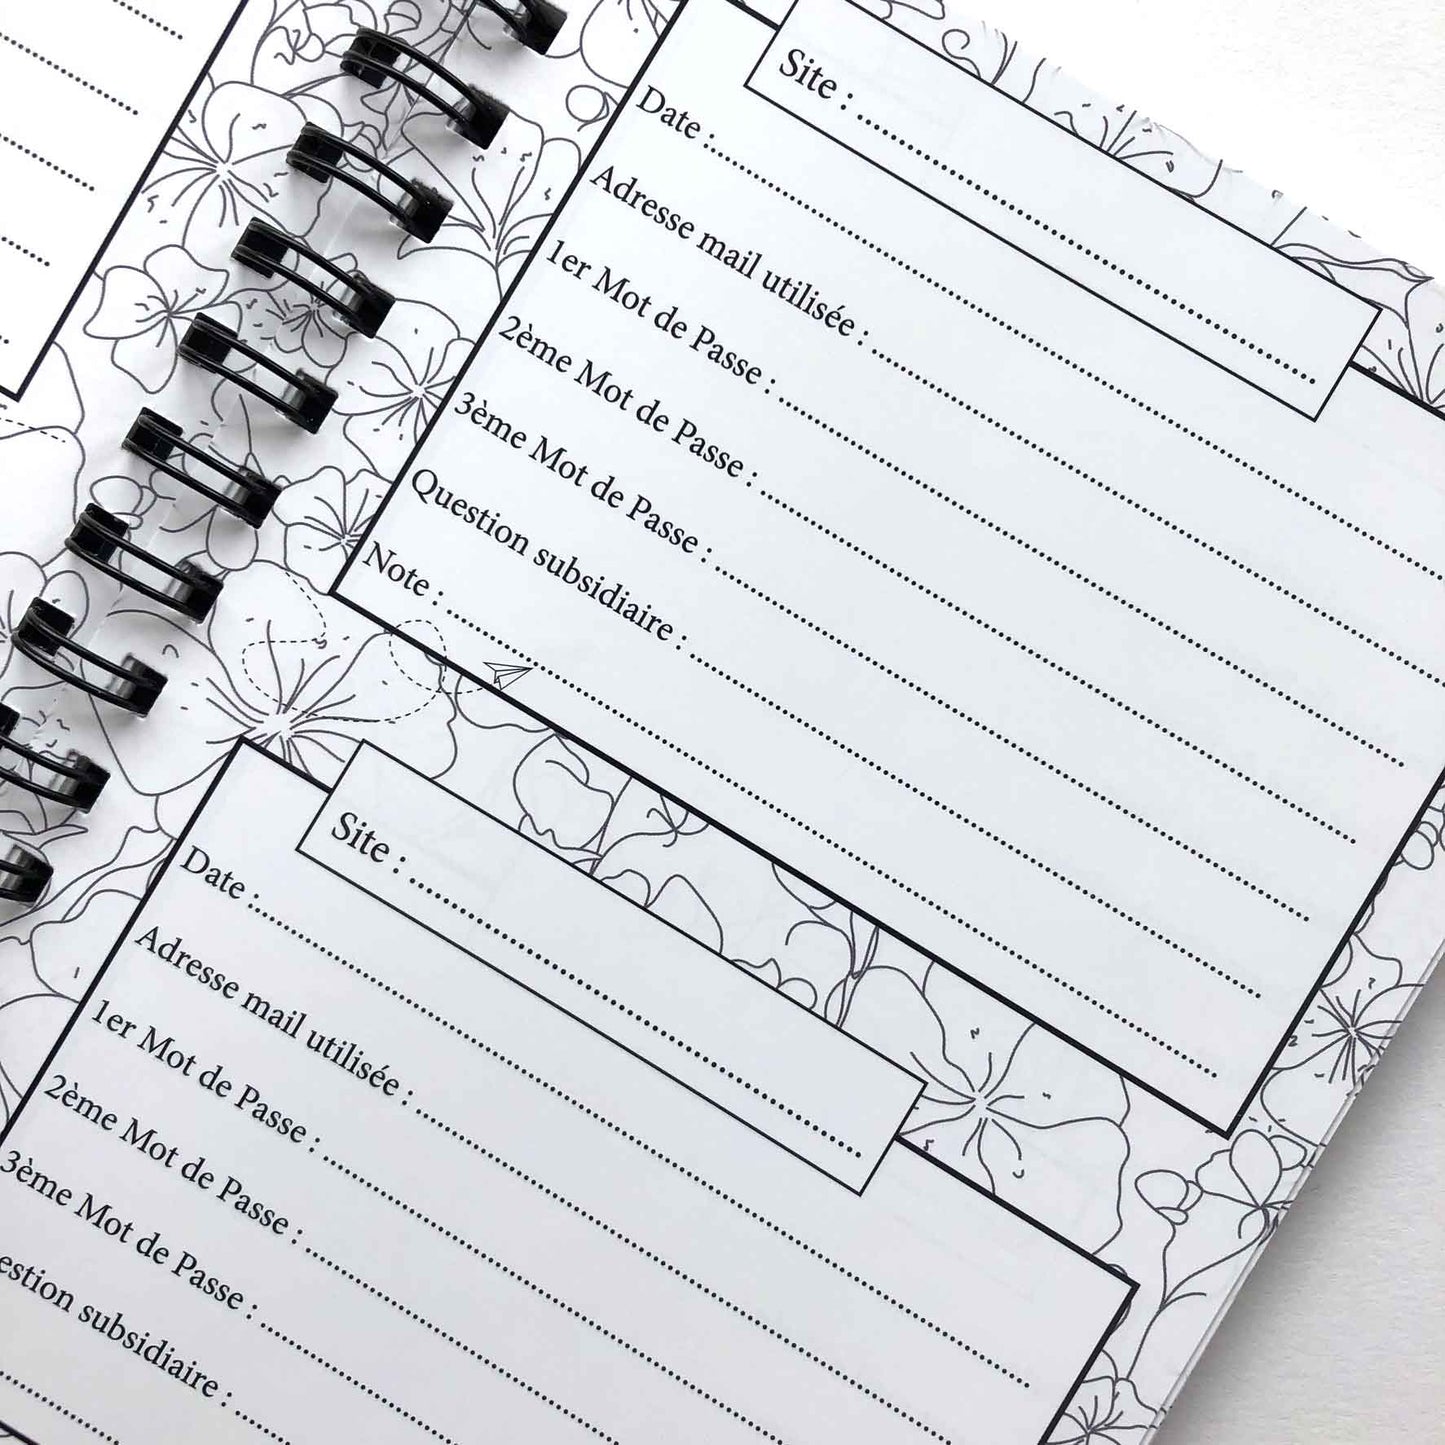 Site :
Date :
Adresse mail utilisée :
1er Mot de Passe :
2ème Mot de Passe :
3ème Mot de Passe :
Question subsidiaire :
Note :
Site :
Date :
Adresse mail utilisée :
1er Mot de Passe :
2ème Mot de Passe :
3ème Mot de Passe :
estion subsidiaire :